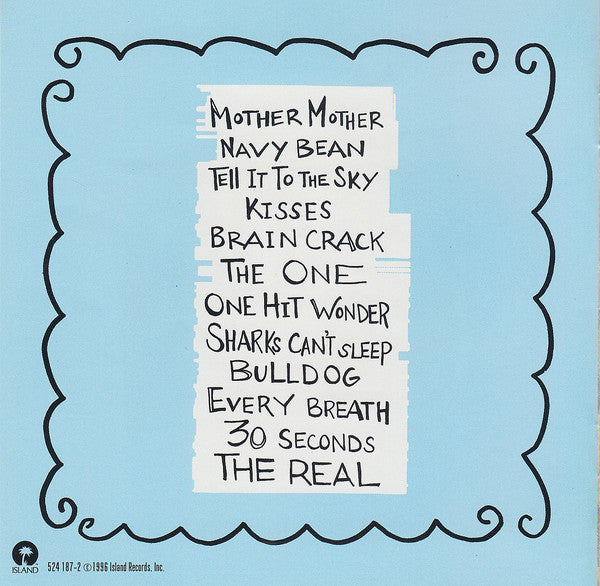 MOTHER MOTHER
NAVY BEAN
TELL IT TO THE SKY
KISSES
BRAIN CRACK
THE ONE
ONE HIT WONDER
SHARKS CAN'T SLEEP
BULLDOG
EVERY BREATH
30 SECONDS
THE REAL
ISLAND
524 187-2 ©1996 Island Records, Inc.